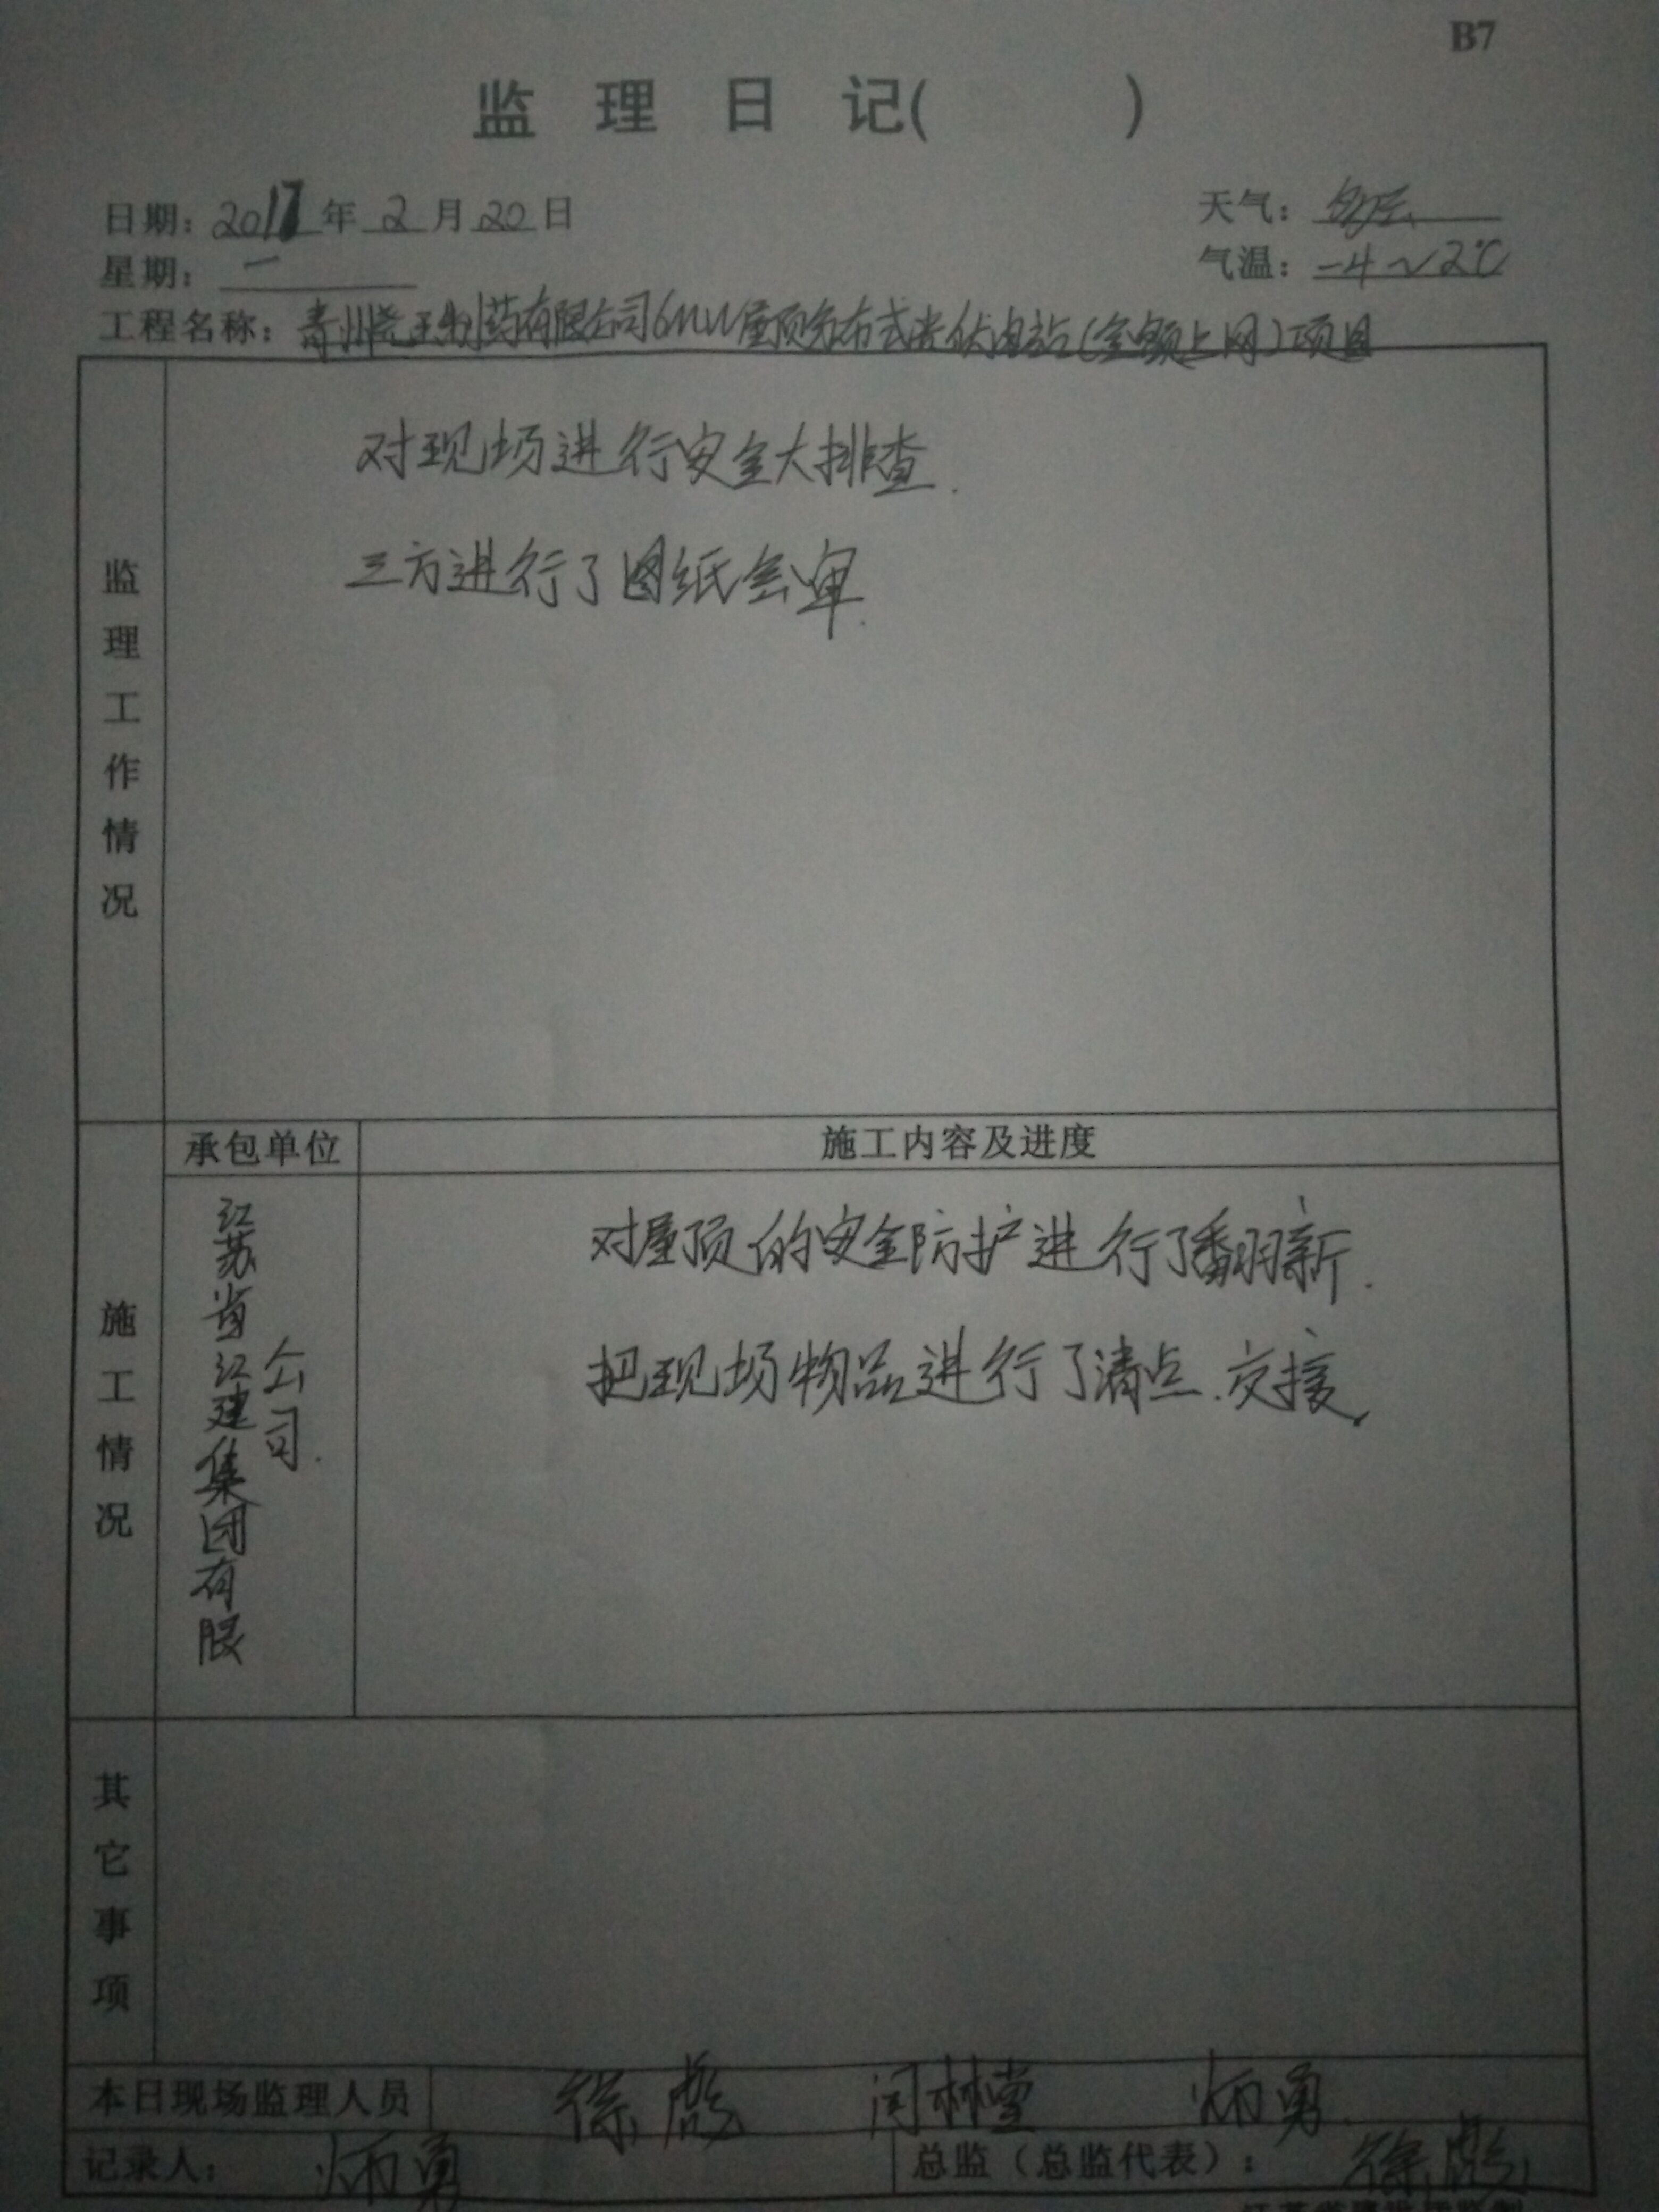 B7
监 理 日 记( )
日期: 2017 年 2 月 20 日
天气: 多云
星期: 一
气温: -4~2℃
工程名称: 青州尧王制药有限公司6MW屋顶分布式光伏电站(全额上网)项目
监理工作情况
对现场进行安全大排查.
三方进行了图纸会审.
施工情况
承包单位
施工内容及进度
江苏省江建集团有限
公司.
对屋顶的安全防护进行了翻新.
把现场物品进行了清点.交接,
其它事项
本日现场监理人员 徐彪 闫林堂 炳勇
记录人: 炳勇
总监（总监代表）: 徐彪